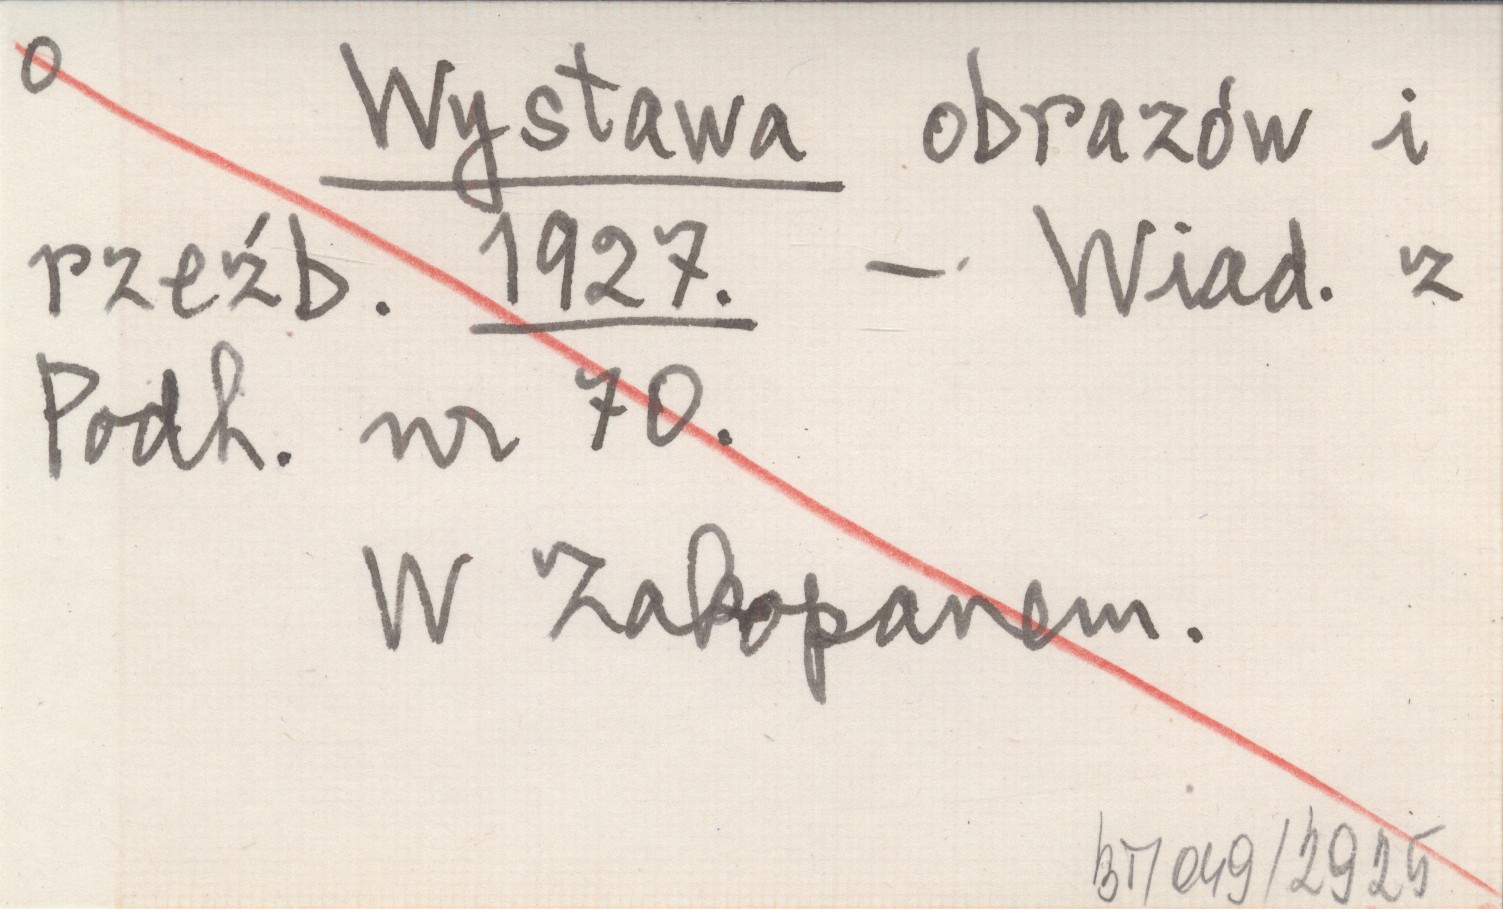 O
Wystawa obrazów i
rzeźb. 1927. – Wiad. z
Podh. nr 70.
W Zakopanem.
BT/049/2925